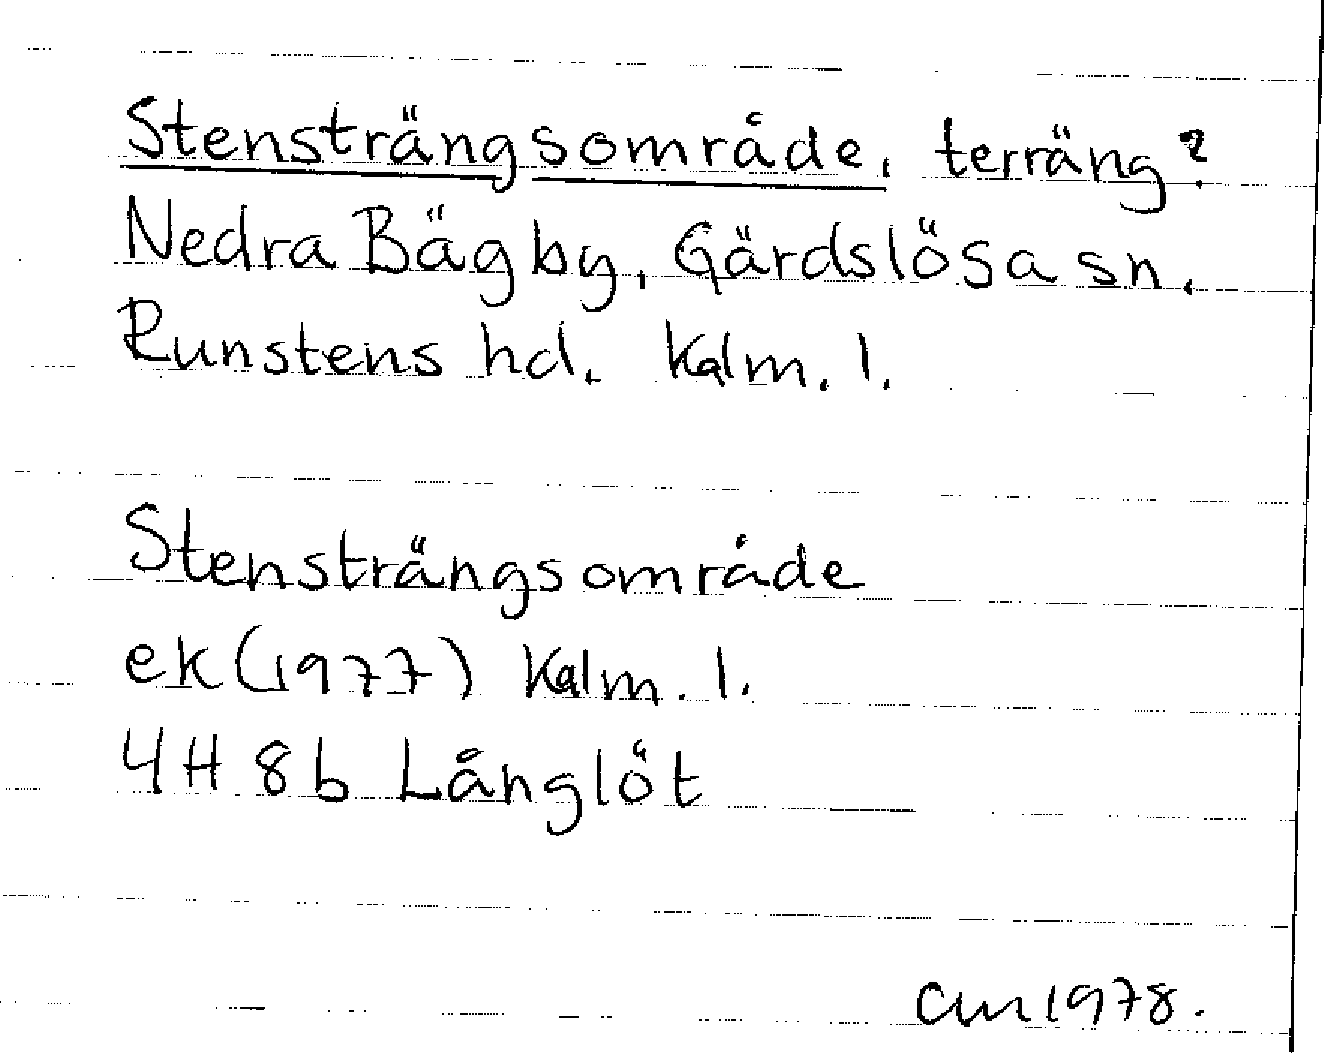 Stensträngsområde, terräng?
Nedra Bägby, Gärdslösa sn.
Runstens hd. Kalm. l.
Stensträngsområde
ek (1977) Kalm. l.
4H 8b Långlöt
CM 1978.